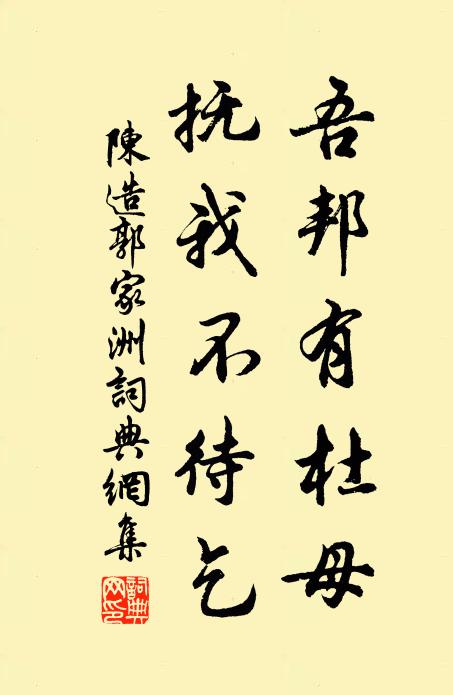 吾邦有杜母
抚我不待乞
陳造郭家洲詞典網集
詞典网印